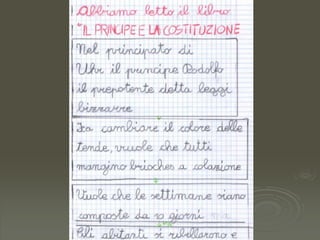 Abbiamo letto il libro
"IL PRINCIPE E LA COSTITUZIONE
Nel principato di
Uhr il principe Rodolfo
il prepotente detta leggi
bizzarre
Fa cambiare il colore delle
tende, vuole che tutti
mangino brioches a colazione
Vuole che le settimane siano
composte da 10 giorni
Gli abitanti si ribellarono e